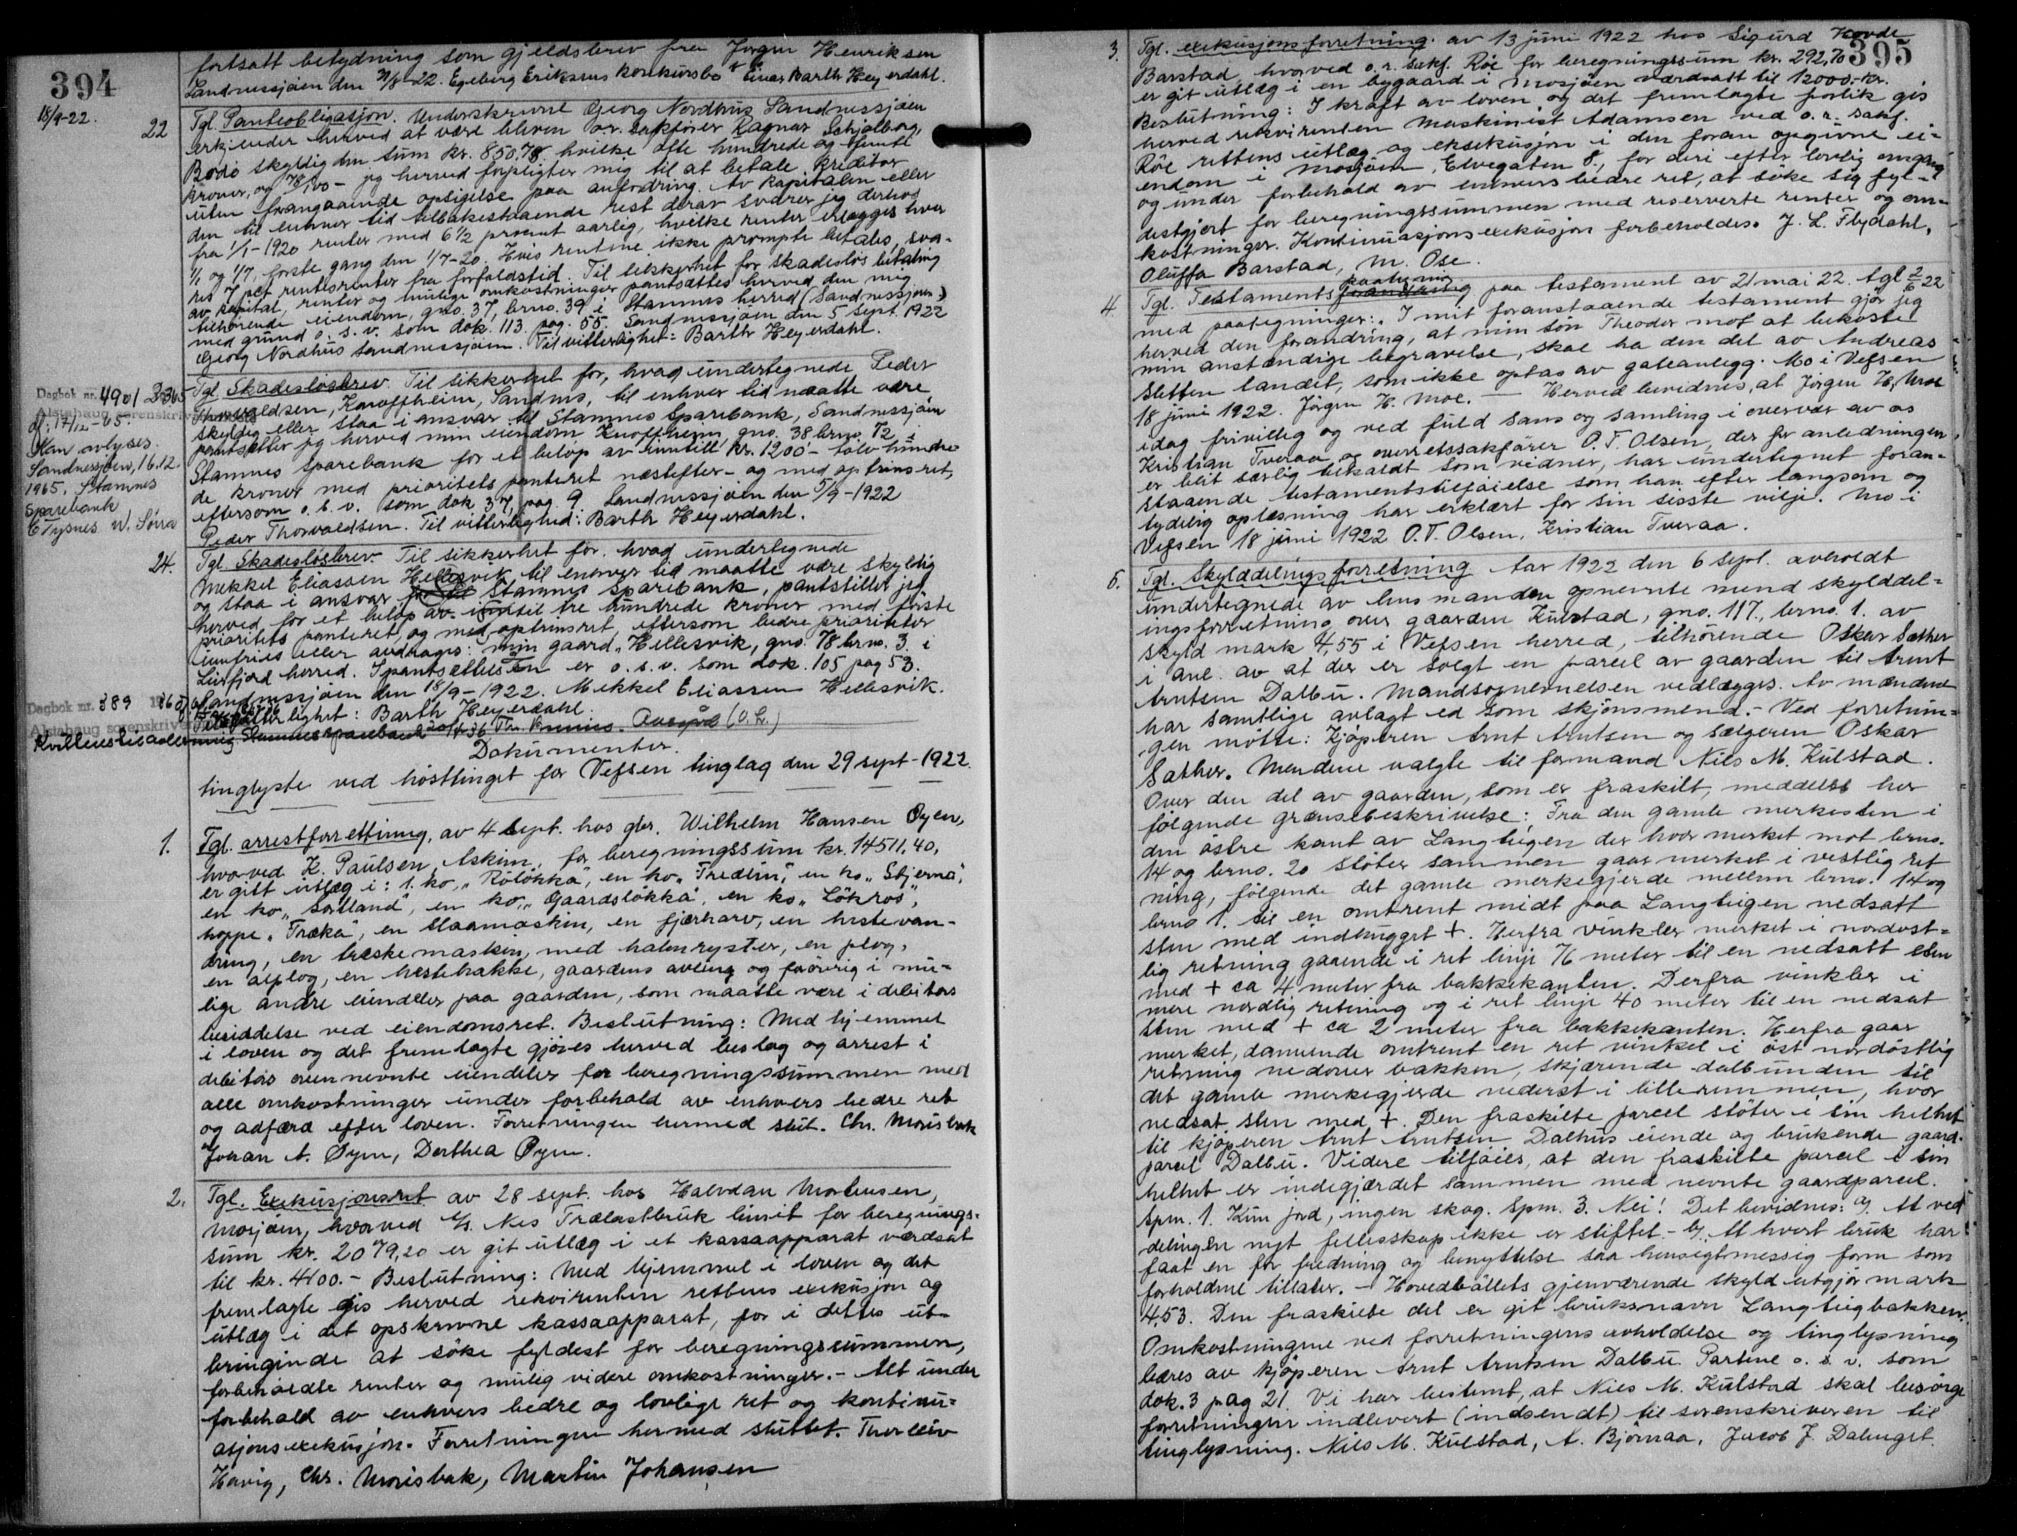 394
fortsatt betydning som gjeldsbrev fra Jørgen Henriksen
Sandnessjøen den 21/8-22. Egeberg Eriksens konkursbo v/ Einar Barth Heyerdahl.
18/9-22.
22
Tgl. Panteobligasjon. Underskrevne Georg Nordhus Sandnessjøen
erkjender herved at være bleven o.r. sakfører Ragnar Schjølberg,
Bodø skyldig den sum kr. 850.78 hvilke otte hundrede og femti
kroner, og 78/100 - jeg herved forpligter mig til at betale kreditor
uten forangaaende opsigelse paa anfordring. Av kapitalen eller
den til enhver tid tilbakestaaende rest derav svarer jeg derhos
fra 1/1-1920 renter med 6 1/2 procent aarlig, hvilke renter erlægges hver
1/1 og 1/7, første gang den 1/7-20. Hvis rentene ikke prompte betales, sva-
res 7 pct rentesrenter fra forfaldstid. Til sikkerhet for skadesløs betaling
av kapital, renter og mulige omkostninger pantsættes herved den mig
tilhørende eiendom, gno. 37, brno. 39 i Stamnes herred (Sandnessjøen)
med grund o. s. v. som dok. 113 pag. 55. Sandnessjøen den 5 sept. 1922
Georg Nordhus Sandnessjøen. Til vitterlighet: Barth Heyerdahl.
Dagbok nr. 4901
Alstahaug sorenskriveri
d: 17/12-65.
Kan avlyses.
Sandnessjøen, 16.12.
1965. Stamnes
Sparebank
E Tysnes W. Sørra
23
Tgl. Skadesløsbrev. Til sikkerhet for, hvad undertegnede Peder
Thorvaldsen, Knoffheim, Sandnes, til enhver tid maatte være
skyldig eller staa i ansvar til Stamnes Sparebank, Sandnessjøen
pantsetter jeg herved min eiendom Knoffheim gno. 38 brno. 72 i
Stamnes sparebank for et beløp av inntil kr. 1200 - tolv hundre-
de kroner med prioritets panteret næstefter - og med optrinsret,
eftersom o. s. v. som dok 37, pag 9 Sandnessjøen den 5/9-1922
Peder Thorvaldsen. Til vitterlighed: Barth Heyerdahl.
24.
Tgl. Skadesløsbrev. Til sikkerhet for. hvad undertegnede
Mekkel Eliassen Hellesvik til enhver tid maatte være skyldig
og staa i ansvar for til Stamnes sparebank, pantstiller jeg
herved for et beløp av inntil tre hundrede kroner med første
prioritets panteret, og med optrinsret eftersom bedre prioriteter
innfries eller avdrages: min gaard „Hellesvik, gno. 78 brno. 3 i
Leirfjord herred. I pantsettelsen er o. s. v. som dok. 105 pag 53.
Sandnessjøen den 18/9-1922. Mekkel Eliassen Hellesvik.
Til vitterlighet: Barth Heyerdahl.
Dagbok nr. 389
Alstahaug sorenskriveri
Kvitteres til avlysning Stamnes sparebank 20/4 36 Avlyst (O.L.)
Dokumenter
tinglyste ved høsttinget for Vefsen tinglag den 29 sept-1922.
1.
Tgl. arrestforretning, av 4 sept. hos gbr. Wilhelm Hansen Øyen,
hvorved K. Paulsen, Askim, for beregningssum kr. 14511,40,
er gitt utlæg i: 1. ko „Røløkka", en ko „Fredlin", en ko „Stjerna",
en ko „Sortland", en ko „Gaardsløkka", en ko „Løkros",
hoppe „Træka", en slaamaskin, en fjærharv, en hestevan-
dring, en træskemaskin, med halmryster, en plog,
en alplog, en hestehakke, gaardens avling og forøvrig i mu-
lige andre eiendeler paa gaarden, som maatte være i debitors
besiddelse ved eiendomsret. Beslutning: Med hjemmel
i loven og det fremlagte gjøres herved beslag og arrest i
debitors ovennevnte eiendeler for beregningssummen med
alle omkostninger under forbehold av enhvers bedre ret
og adfærd efter loven. Forretningen hermed slut. Chr. Morisbak
Johan A. Øyen, Dorthea Øyen.
2.
Tgl. Exekusjonsret av 28 sept. hos Halvdan Mortensen,
Mosjøen, hvorved A/S. Nes Trælastbruk limit for beregnings-
sum kr. 2079,20 er git utlæg i et kassaapparat værdsat
til kr. 4100.- Beslutning: Med hjemmel i loven og det
fremlagte gis herved rekvirenten rettens exekusjon og
utlæg i det opskrevne kassaapparat, for i dettes ut-
bringende at søke fyldest for beregningssummen,
forbeholdte renter og mulig videre omkostninger. - Alt under
forbehold av enhvers bedre og lovlige ret og kontinu-
asjonsexekusjon. Forretningen hermed sluttet. Thorleiv
Havig, Chr. Morisbak, Martin Johansen
395
3.
Tgl. exekusjonsforretning. av 13 juni 1922 hos Sigurd Hovde
Barstad, hvorved o.r. sakf. Røe for beregningssum kr. 292,70
er git utlæg i en bygaard i Mosjøen værdsatt til 12000.-kr.
Beslutning: I kraft av loven og det fremlagte forlik gis
herved rekvirenten maskinist Adamsen ved o. r. sakf.
Røe rettens utlæg og eksekusjon i den foran opgivne ei-
endom i Mosjøen, Elvegaten 8, for deri efter lovlig omgang
og under forbehold av enhvers bedre ret, at søke sig fyl-
destgjort for beregningssummen med reserverte renter og om-
kostninger. Kontinuasjonsexekusjon forbeholdes. J. L. Flydahl,
Oluffa Barstad, M. Ose.
4.
Tgl. Testaments forandring paategning paa testament av 21 mai 22. tgl 2/6 22
med paategninger: I mit foranstaaende testament gjør jeg
herved den forandring, at min søn Theodor mot at bekoste
min anstændige begravelse, skal ha den del av Andreas
Sletten landet, som ikke optas av gateanlegg. Mo i Vefsen
18 juni 1922. Jørgen H. Moe. — Herved bevidnes, at Jørgen H. Moe
idag frivillig og ved fuld sans og samling i overvær av os
Kristian Tveraa og overretssakfører O. T. Olsen, der for anledningen
er blit særlig tilkaldt som vidner, har undertegnet foran-
staaende testamentstilføielse som han efter langsom og
tydelig oplæsning har erklært for sin sisste vilje. Mo i
Vefsen 18 juni 1922 O. T. Olsen, Kristian Tveraa.
5.
Tgl. Skylddelingsforretning Aar 1922 den 6 sept. avholdt
undertegnede av lensmanden opnevnte mend skylddel-
ingsforretning over gaarden Kulstad, gno. 117., brno. 1. av
skyld mark 4,55 i Vefsen herred, tilhørende Oskar Sæther
i anl. av at der er solgt en parcel av gaarden til Arnt
Arntsen Dalbu. Mandsopnevnelsen vedlægges. Av mændene
har samtlige avlagt ed som skjønsmend. - Ved forretnin-
gen møtte: Kjøperen Arnt Arntsen og sælgeren Oskar
Sæther. Mendene valgte til formand Nils M. Kulstad.
Over den del av gaarden, som er fraskilt, meddeles her
følgende grænsebeskrivelse: Fra den gamle merkesten i
den østre kant av Langteigen der hvor merket mot brno.
14 og brno. 20 støter sammen gaar merket i vestlig ret
ning, følgende det gamle merkegjerde mellem brno. 14 og
brno 1. til en omtrent midt paa Langteigen nedsatt
sten med indhugget +. Herfra vinkler merket i nordøst-
lig retning gaaende i ret linje 76 meter til en nedsatt sten
med + ca 4 meter fra bakkekanten. Derfra vinkler i
mere nordlig retning og i ret linje 40 meter til en nedsat
sten med + ca 2 meter fra bakkekanten. Herfra gaar
merket, dannende omtrent en ret vinkel i øst nordøstlig
retning nedover bakken, skjærende dalbunden til
det gamle merkegjerde nederst i lilleremmen, hvor
nedsat sten med +. Den fraskilte parcel støter i sin helhet
til kjøperen Arnt Arntsen Dalbus eiende og brukende gaard-
parcel Dalbu. Videre tilføies, at den fraskilte parcel i sin
helhet er indegjærdet sammen med nevnte gaardparcel.
Spm. 1. Kun jord, ingen skog. Spm. 3. Nei! Det bevidnes: a/. At ved
delingen nyt fellesskap ikke er stiftet - b/. At hvert bruk har
faat en for fredning og benyttelse saa hensigtmessig form som
forholdene tillater. - Hovedbøllets gjenværende skyld utgjør mark
4.53. Den fraskilte del er git bruksnavn Langteigbakken.
Omkostningene ved forretningens avholdelse og tinglysning
bæres av kjøperen Arnt Arntsen Dalbu. Partene o. s. v. som
dok. 3 pag 21. Vi har bestemt, at Nils M. Kulstad skal besørge
forretningen indlevert (indsendt) til sorenskriveren til
tinglysning. Nils M. Kulstad, A. Bjørnaa, Jacob J. Dalenget.